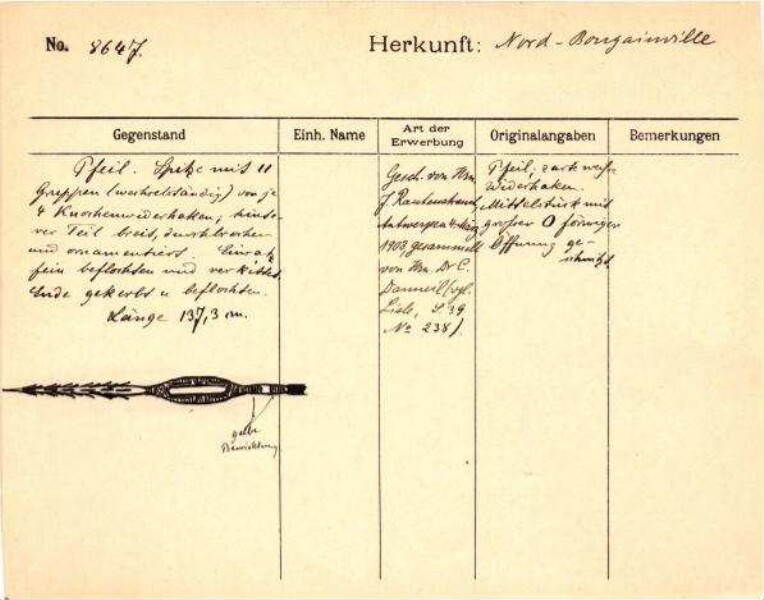 No. 8647.
Herkunft: Nord-Bougainville
Gegenstand
Einh. Name
Art der Erwerbung
Originalangaben
Bemerkungen
Pfeil. Spitze mit 11
Gruppen (wechselständig) von je
4 Knochenwiderhaken; hinte-
rer Teil breit, durchbrochen
und ornamentiert. Einsatz
fein beflochten und verkittet.
Ende gekerbt u beflochten.
Länge 137,3 cm.
Gesch. von Hrn.
J Rautenstrauch
Antwerpen
1903, gesammelt
von Hrn. Dr C.
Danneil (vgl.
Liste, S. 39
No 238).
Pfeil;
Widerhaken.
Mittelstück mit
grosser O förmiger
Öffnung ge-
schnitzt
gelbe
Bewicklung